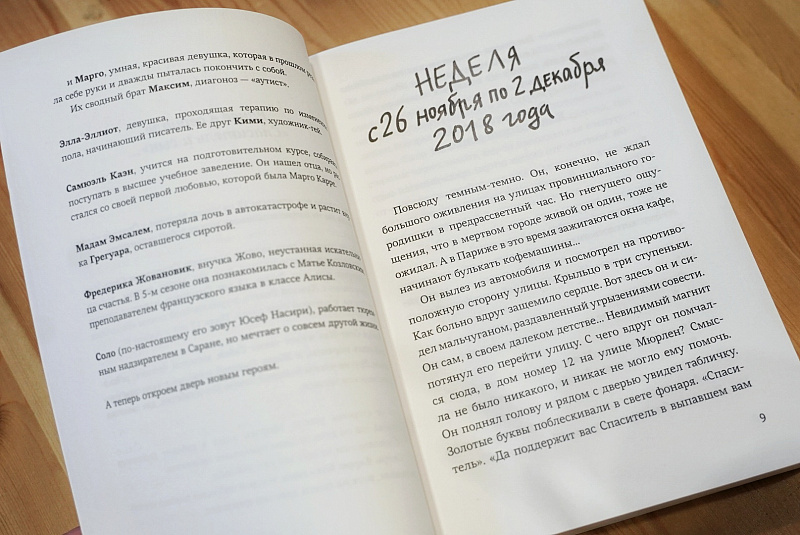 и Марго, умная, красивая девушка, которая в прошлом
ла себе руки и дважды пыталась покончить с собой.
Их сводный брат Максим, диагноз — «аутист».
Элла-Эллиот, девушка, проходящая терапию по
пола, начинающий писатель. Ее друг Кими, художник-гей.
Самюэль Каэн, учится на подготовительном курсе,
поступать в высшее учебное заведение. Он нашел отца, но
стался со своей первой любовью, которой была Марго Карре.
Мадам Эмсалем, потеряла дочь в автокатастрофе и растит
ка Грегуара, оставшегося сиротой.
Фредерика Жовановик, внучка Жово, неустанная
ца счастья. В 5-м сезоне она познакомилась с Матье Козловским
преподавателем французского языка в классе Алисы.
Соло (по-настоящему его зовут Юсеф Насири), работает
ным надзирателем в Саране, но мечтает о совсем другой жизни.
А теперь откроем дверь новым героям.
НЕДЕЛЯ
с 26 ноября по 2 декабря
2018 года
Повсюду темным-темно. Он, конечно, не ждал
большого оживления на улицах провинциального го-
родишки в предрассветный час. Но гнетущего ощу-
щения, что в мертвом городе живой он один, тоже не
ожидал. А в Париже в это время зажигаются окна кафе,
начинают булькать кофемашины...
Он вылез из автомобиля и посмотрел на противо-
положную сторону улицы. Крыльцо в три ступеньки.
Как больно вдруг защемило сердце. Вот здесь он и си-
дел мальчуганом, раздавленный угрызениями совести.
Он сам, в своем далеком детстве... Невидимый магнит
потянул его перейти улицу. С чего вдруг он помчал-
ся сюда, в дом номер 12 на улице Мюрлен? Смыс-
ла не было никакого, и никак не могло ему помочь.
Он поднял голову и рядом с дверью увидел табличку.
Золотые буквы поблескивали в свете фонаря. «Спаси-
тель». «Да поддержит вас Спаситель в выпавшем вам
9